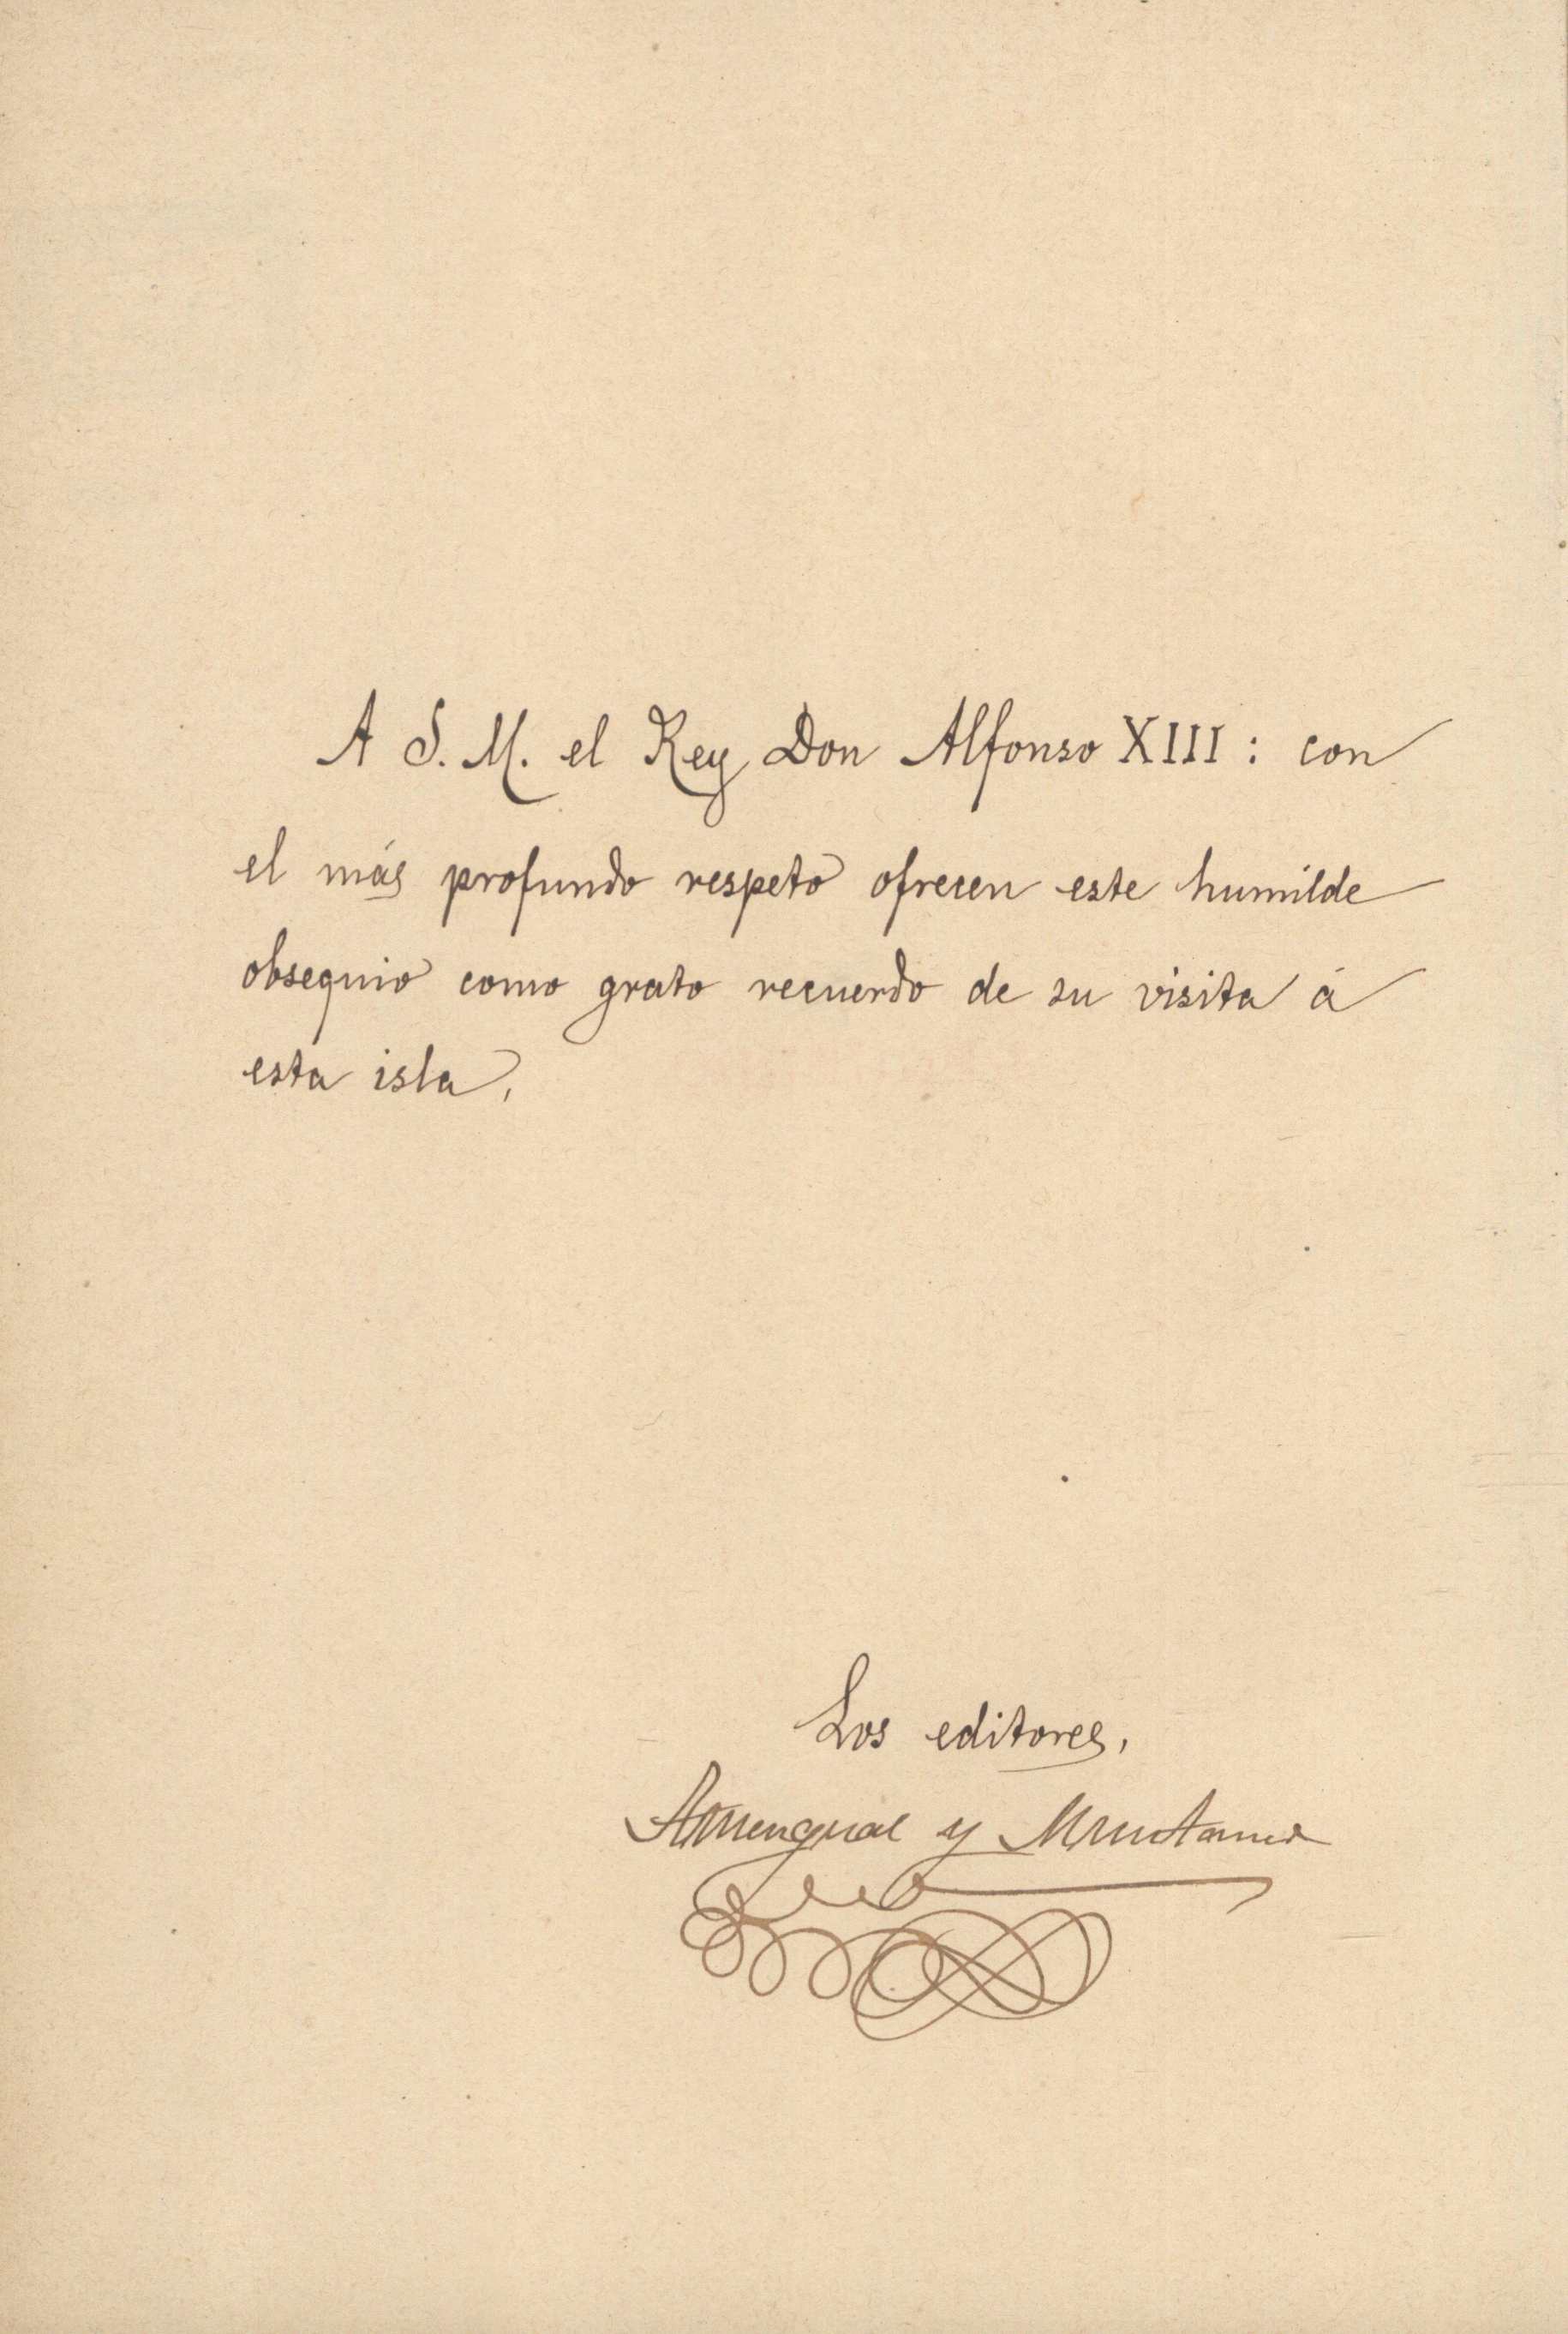 A S. M. el Rey Don Alfonso XIII: con
el más profundo respeto ofrecen este humilde
obsequio como grato recuerdo de su visita á
esta isla,
Los editores,
Amengual y Muntaner